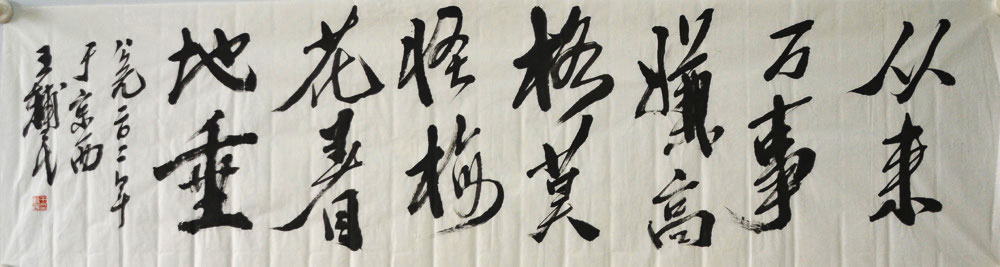 从来
万事
嫌高
格莫
怪梅
花着
地垂
公元二〇一二年
于京西
王